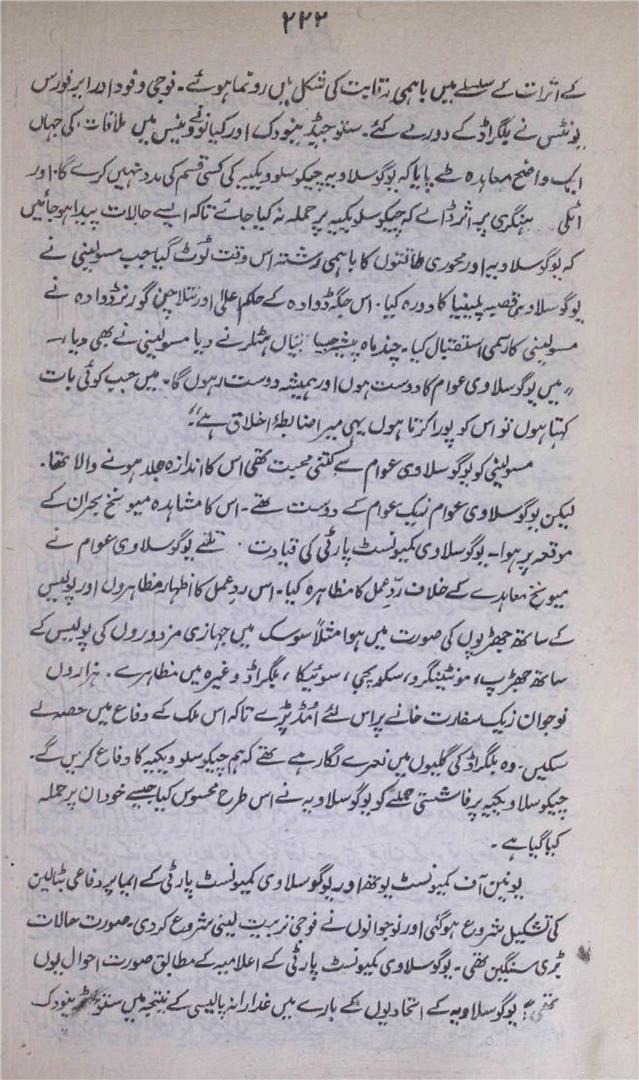 ۲۲۲
کے اثرات کے سلسلے میں باہمی رقابت کی شکل میں رونما ہوئے۔ فوجی وفود اور ایر فورس
یونٹس نے بلگراڈ کے دورے کئے۔ ستوجیڈینووک اور کیانو نے وینس میں ملاقات کی جہاں
ایک واضح معاہدہ طے پایا کہ یوگوسلاویہ چیکوسلوویکیہ کی کسی قسم کی مدد نہیں کرے گا۔ اور
اٹلی ہنگری پر اثر ڈالے کہ چیکوسلویکیہ پر حملہ نہ کیا جائے تاکہ ایسے حالات پیدا ہو جائیں
کہ یوگوسلاویہ اور محوری طاقتوں کا باہمی رشتہ اس وقت ٹوٹ گیا جب مسولینی نے
یوگوسلاوی قصبہ پلینیا کا دورہ کیا۔ اس جگہ ڈوادہ کے حاکم اعلیٰ اور نتلاچن گورنر ڈوادہ نے
مسولینی کا رسمی استقبال کیا۔ چند ماہ پیشتر جیسا بیاں ہٹلر نے دیا مسولینی نے بھی دیا،۔
"میں یوگوسلاوی عوام کا دوست ہوں اور ہمیشہ دوست رہوں گا۔ میں جب کوئی بات
کہتا ہوں تو اس کو پورا کرتا ہوں یہی میرا ضابطۂ اخلاق ہے"۔
مسولینی کو یوگوسلاوی عوام سے کتنی محبت تھی اس کا اندازہ جلد ہونے والا تھا۔
لیکن یوگوسلاوی عوام زیک عوام کے دوست تھے۔ اس کا مشاہدہ میونخ بحران کے
موقعہ پر ہوا۔ یوگوسلاوی کمیونسٹ پارٹی کی قیادت تلے یوگوسلاوی عوام نے
میونخ معاہدے کے خلاف ردِّ عمل کا مظاہرہ کیا۔ اس ردِ عمل کا اظہار مظاہروں اور پولیس
کے ساتھ جھڑپوں کی صورت میں ہوا مثلاً سوسک میں جہازی مزدوروں کی پولیس کے
ساتھ جھڑپ، مونٹینگرو، سکوپجی، سوئیکا، بلگراڈ وغیرہ میں مظاہرے۔ ہزاروں
نوجوان زیک سفارت خانے پر اس لئے اُمڈ پڑے تاکہ اس ملک کے دفاع میں حصہ لے
سکیں۔ وہ بلگراڈ کی گلیوں میں نعرے لگا رہے تھے کہ ہم چیکوسلوویکیہ کا دفاع کریں گے۔
چیکوسلاویکیہ پر فاشسٹی حملے کو یوگوسلاویہ نے اس طرح محسوس کیا جیسے خود ان پر حملہ
کیا گیا ہے۔
یونین آف کمیونسٹ یوتھ اور یوگوسلاوی کمیونسٹ پارٹی کے ایما پر دفاعی بٹالین
کی تشکیل شروع ہو گئی اور نوجوانوں نے فوجی تربیت لینی شروع کر دی۔ صورت حالات
بڑی سنگین تھی۔ یوگوسلاوی کمیونسٹ پارٹی کے اعلامیہ کے مطابق صورت احوال یوں
تھی: "یوگوسلاویہ کے اتحادیوں کے بارے میں غدارانہ پالیسی کے نتیجہ میں